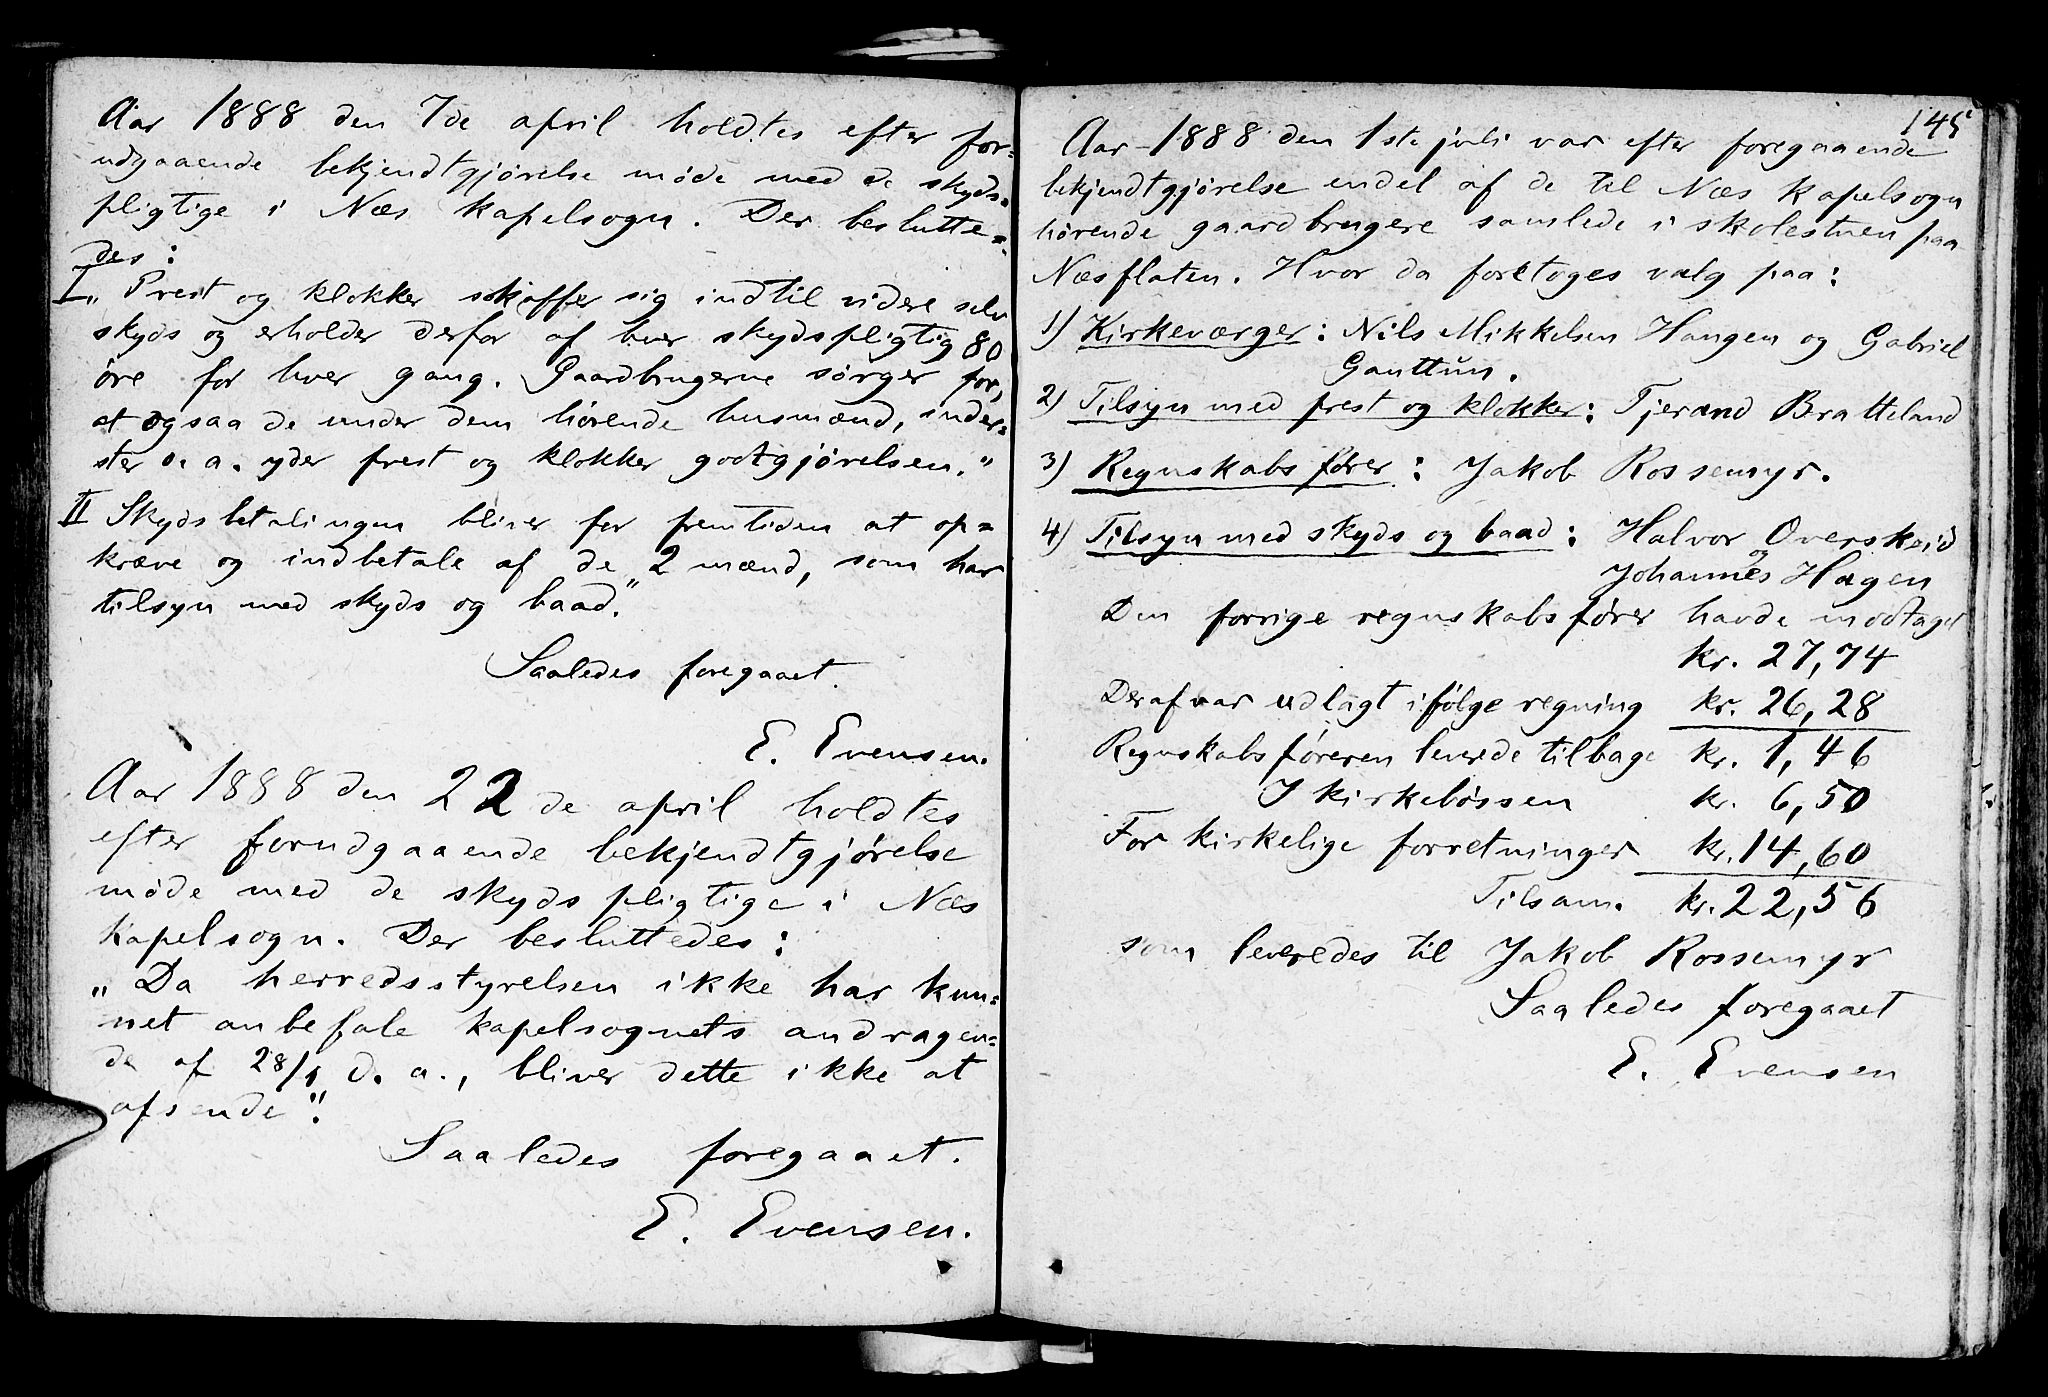 Aar 1888 den 7de april holdtes efter for=
udgaaende bekjendtgjørelse møde med de skyds=
pligtige i Næs kapelsogn. Der beslutte=
des:
I „Prest og klokker skaffer sig indtil videre selv
skyds og erholder derfor af hver skydspligtig 80
øre for hver gang. Gaardbrugerne sørger for,
at ogsaa de under dem hørende husmænd, inder=
ster o. a. yder prest og klokker godtgjørelsen."
II Skydsbetalingen bliver for fremtiden at op=
kræve og indbetale af de 2 mænd, som har
tilsyn med skyds og baad."
Saaledes foregaaet.
E. Evensen.
Aar 1888 den 22de april holdtes
efter forudgaaende bekjendtgjørelse
møde med de skydspligtige i Næs
kapelsogn. Der besluttedes:
„Da herredsstyrelsen ikke har kun=
net anbefale kapelsognets andragen=
de af 28/1 d. a., bliver dette ikke at
afsende".
Saaledes foregaaet.
E. Evensen.
145
Aar 1888 den 1ste juli var efter foregaaende
bekjendtgjørelse endel af de til Næs kapelsogn
hørende gaardbrugere samlede i skolestuen paa
Næsflaten. Hvor da foretoges valg paa:
1) Kirkeværger: Nils Mikkelsen Haugen og Gabriel
Gauttun.
2) Tilsyn med prest og klokker: Tjerand Bratteland
3) Regnskabsfører: Jakob Rossemyr.
4) Tilsyn med skyds og baad: Halvor Overskeid
og
Johannes Hagen
Den forrige regnskabsfører havde modtaget
kr. 27,74
Deraf var udlagt ifølge regning kr. 26,28
Regnskabsføreren leverede tilbage kr. 1,46
I kirkebøssen kr. 6,50
For kirkelige forretninger kr. 14,60
Tilsam. kr. 22,56
som leveredes til Jakob Rossemyr
Saaledes foregaaet
E. Evensen